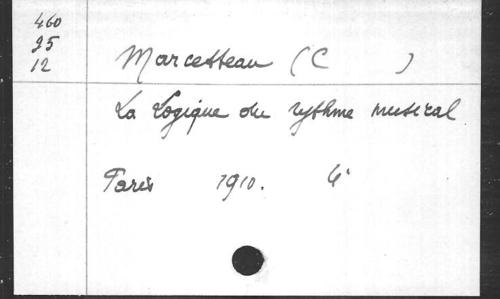 460
25
12
Marcetteau (C )
La Logique du rythme musical
Paris 1910. 4°